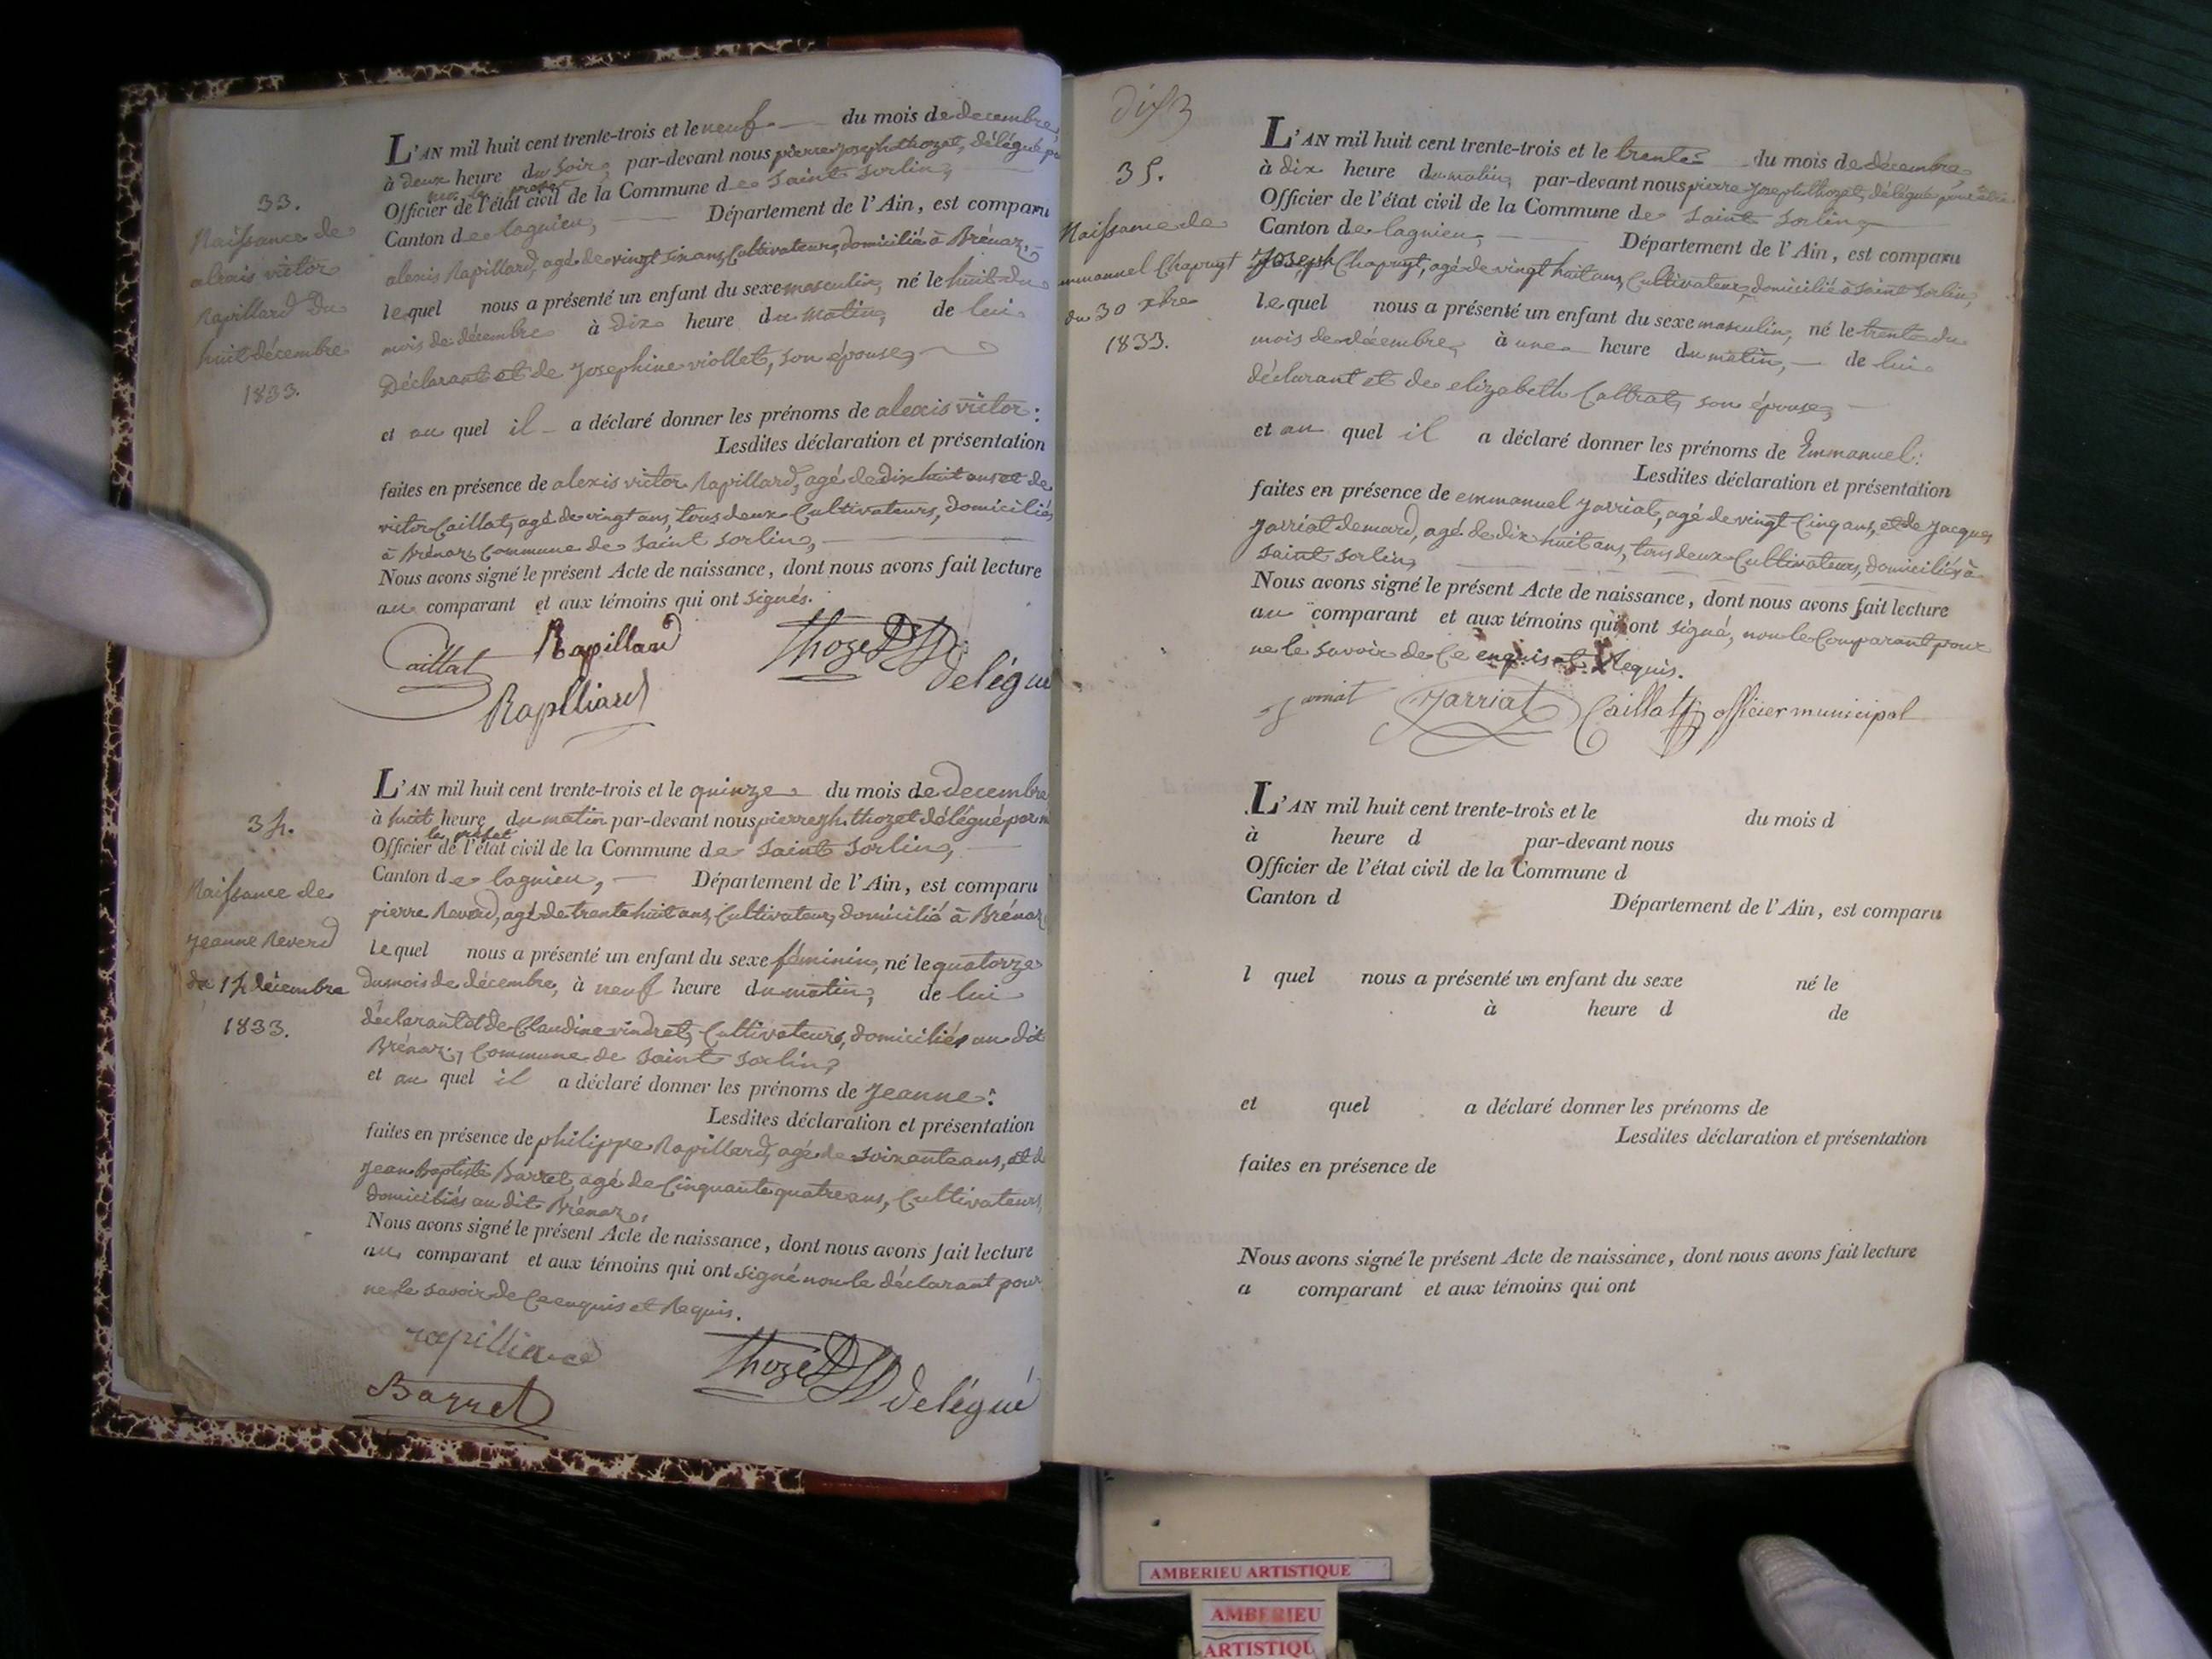 33.
Naissance de
alexis victor
Rapillard du
huit décembre
1833.
L'AN mil huit cent trente-trois et le neuf du mois de decembre,
à deux heure du soir, par-devant nous pierre joseph thozet, délégué par
mr le prefet
Officier de l'état civil de la Commune de Saint Sorlin,
Canton de lagnieu, Département de l'Ain, est comparu
alexis Rapillard, agé de vingt six ans, Cultivateur, domicilié à Brénaz,
lequel nous a présenté un enfant du sexe masculin, né le huit du
mois de décembre à dix heure du matin, de lui
Déclarant et de Josephine viollet, son épouse,
et au quel il a déclaré donner les prénoms de alexis victor:
Lesdites déclaration et présentation
faites en présence de alexis victor Rapillard, agé de dix huit ans et de
victor Caillat, agé de vingt ans, tous deux Cultivateurs, domiciliés
à Brénaz, Commune de Saint Sorlin,
Nous avons signé le présent Acte de naissance, dont nous avons fait lecture
au comparant et aux témoins qui ont signés.
Caillat Rapillard Thozet
Délégué
Rapilliard
34.
Naissance de
jeanne Reverd
du 14 décembre
1833.
L'AN mil huit cent trente-trois et le quinze du mois de decembre
à huit heure du matin par-devant nous pierre jh. thozet délégué par m
le prefet
Officier de l'état civil de la Commune de Saint Sorlin,
Canton de lagnieu, Département de l'Ain, est comparu
pierre Reverd, agé de trente huit ans, Cultivateur, domicilié à Brénaz
lequel nous a présenté un enfant du sexe féminin, né le quatorze
du mois de décembre, à neuf heure du matin, de lui
déclarant et de Claudine vindret, Cultivateurs, domiciliés au dit
Brénaz, Commune de Saint Sorlin,
et au quel il a déclaré donner les prénoms de Jeanne:
Lesdites déclaration et présentation
faites en présence de philippe Rapillard, agé de soixante ans, et d
Jean Baptiste Barret, agé de Cinquante quatre ans, Cultivateurs,
domiciliés au dit Brénaz,
Nous avons signé le présent Acte de naissance, dont nous avons fait lecture
au comparant et aux témoins qui ont signé non le déclarant pour
ne le savoir de Ce enquis et Requis.
rapilliard
Thozet délégué
Barret
35.
Naissance de
emmanuel Chapuyt
du 30 xbre
1833.
L'AN mil huit cent trente-trois et le trente du mois de décembre,
à dix heure du matin, par-devant nous pierre Joseph thozet, délégué
Officier de l'état civil de la Commune de Saint Sorlin,
Canton de lagnieu, Département de l'Ain, est comparu
Joseph Chapuyt, agé de vingt huit ans, Cultivateur, domicilié à Saint Sorlin,
lequel nous a présenté un enfant du sexe masculin, né le trente du
mois de décembre, à une heure du matin, de lui
déclarant et de elizabeth Cattrat, son épouse,
et au quel il a déclaré donner les prénoms de Emmanuel:
Lesdites déclaration et présentation
faites en présence de emmanuel Jarriat, agé de vingt Cinq ans, et de Jacques
Jarriat demard, agé de dix huit ans, tous deux Cultivateurs, domiciliés à
Saint Sorlin,
Nous avons signé le présent Acte de naissance, dont nous avons fait lecture
au comparant et aux témoins qui ont signé, non le Comparant pour
ne le savoir de Ce enquis et Requis.
Jarriat Caillat officier municipal
L'AN mil huit cent trente-trois et le du mois d
à heure d par-devant nous
Officier de l'état civil de la Commune d
Canton d Département de l'Ain, est comparu
l quel nous a présenté un enfant du sexe né le
à heure d de
et quel a déclaré donner les prénoms de
Lesdites déclaration et présentation
faites en présence de
Nous avons signé le présent Acte de naissance, dont nous avons fait lecture
a comparant et aux témoins qui ont
AMBERIEU ARTISTIQUE
AMBERIEU
ARTISTIQU